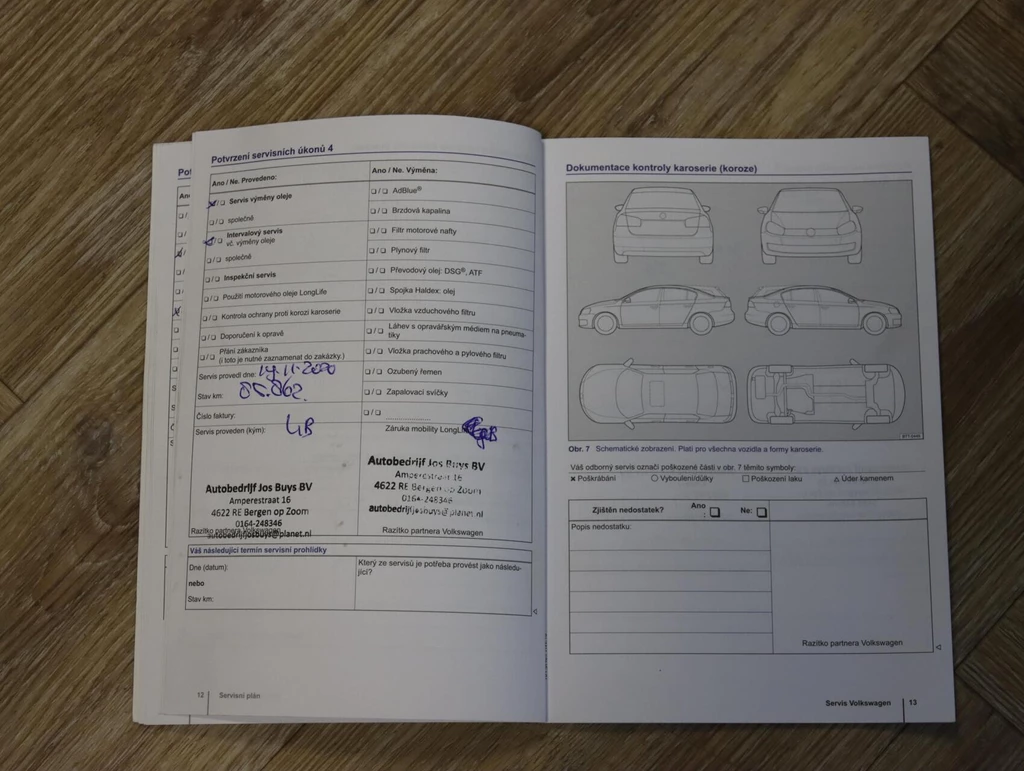 Potvrzení servisních úkonů 4
Ano / Ne. Provedeno:
❑/❑ Servis výměny oleje
❑/❑ společně
❑/❑ Intervalový servis
vč. výměny oleje
❑/❑ společně
❑/❑ Inspekční servis
❑/❑ Použití motorového oleje LongLife
❑/❑ Kontrola ochrany proti korozi karoserie
❑/❑ Doporučení k opravě
❑/❑ Přání zákazníka
(i toto je nutné zaznamenat do zakázky.)
Servis provedl dne: 19-11-2020
Stav km:
Číslo faktury:
Servis proveden (kým):
Autobedrijf Jos Buys BV
Amperestraat 16
4622 RE Bergen op Zoom
0164-248346
autobedrijfjosbuys@planet.nl
Razítko partnera Volkswagenu
Ano / Ne. Výměna:
❑/❑ AdBlue®
❑/❑ Brzdová kapalina
❑/❑ Filtr motorové nafty
❑/❑ Plynový filtr
❑/❑ Převodový olej: DSG®, ATF
❑/❑ Spojka Haldex: olej
❑/❑ Vložka vzduchového filtru
❑/❑ Láhev s opravářským médiem na pneuma-
tiky
❑/❑ Vložka prachového a pylového filtru
❑/❑ Ozubený řemen
❑/❑ Zapalovací svíčky
❑/❑
Záruka mobility
Autobedrijf Jos Buys BV
Amperestraat 16
4622 RE Bergen op Zoom
0164-248346
autobedrijfjosbuys@planet.nl
Razítko partnera Volkswagen
Váš následující termín servisní prohlídky
Dne (datum):
nebo
Stav km:
Který ze servisů je potřeba provést jako následu-
jící?
12 Servisní plán
Dokumentace kontroly karoserie (koroze)
Obr. 7 Schematické zobrazení. Platí pro všechna vozidla a formy karoserie.
Váš odborný servis označí poškozené části v obr. 7 těmito symboly:
× Poškrábání ○ Vyboulení/důlky □ Poškození laku △ Úder kamenem
Zjištěn nedostatek? Ano
: ❑ Ne: ❑
Popis nedostatku:
Razítko partnera Volkswagen
Servis Volkswagen 13